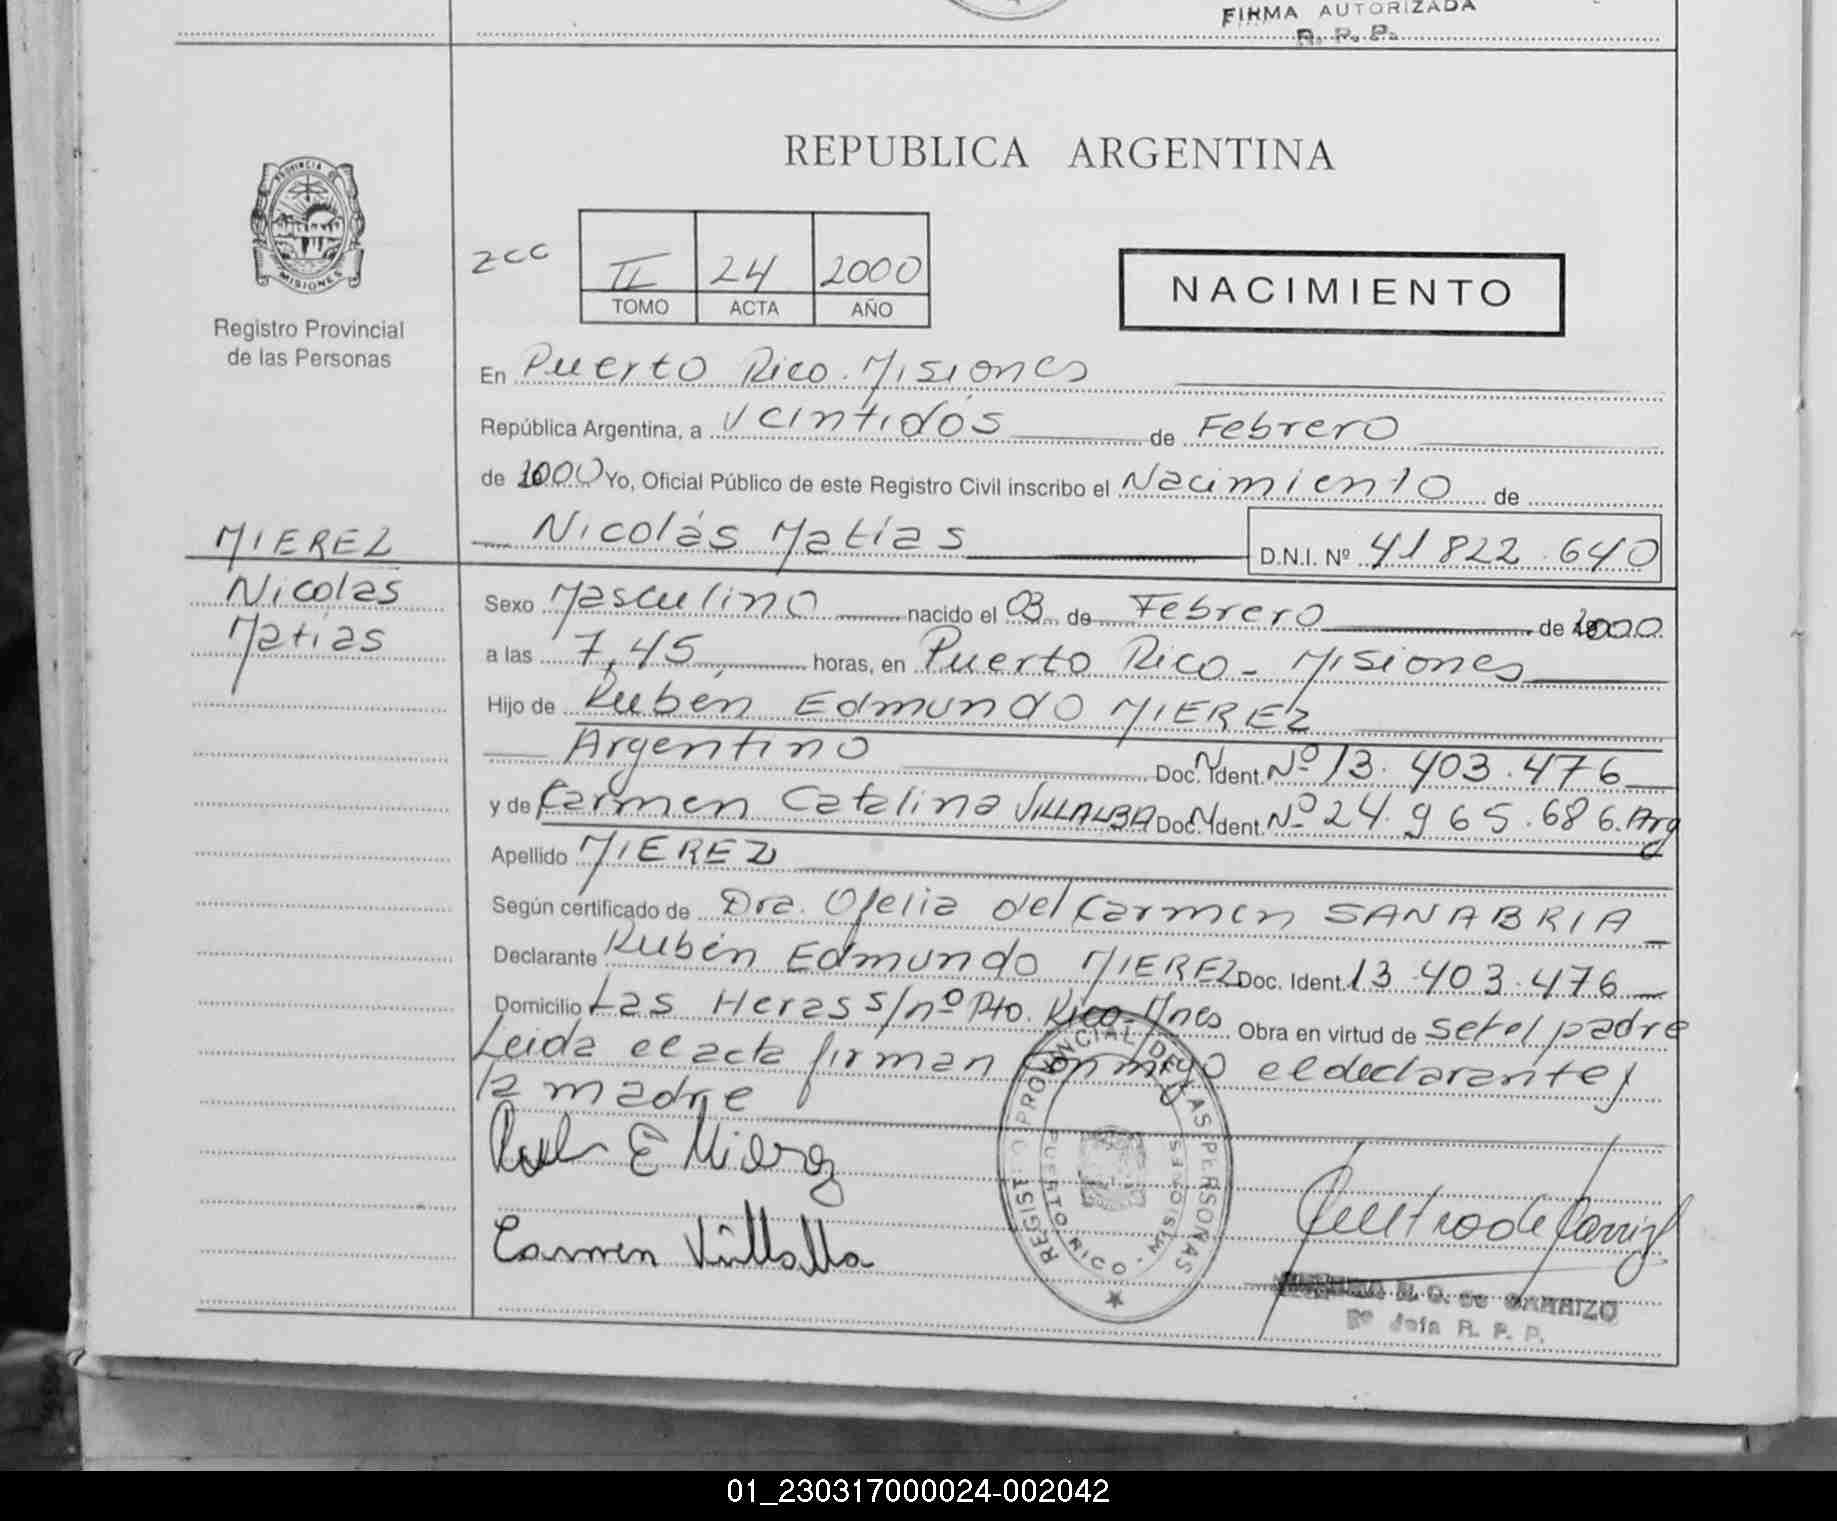 FIRMA AUTORIZADA
R. P. P.
REPUBLICA ARGENTINA
PROVINCIA DE
MISIONES
Registro Provincial
de las Personas
2cc
II 24 2000
TOMO ACTA AÑO
NACIMIENTO
En Puerto Rico. Misiones
República Argentina, a veintidós de Febrero
de 2000 Yo, Oficial Público de este Registro Civil inscribo el Nacimiento de
Nicolás Matías D.N.I. Nº 41 822.640
MIEREZ
Nicolas
Matias
Sexo Masculino nacido el 03 de Febrero de 2000
a las 7,45 horas, en Puerto Rico - Misiones
Hijo de Rubén Edmundo MIEREZ
Argentino Doc. N Ident. Nº 13.403.476
y de Carmen Catalina VILLALBA Doc. N Ident. Nº 24.965.686. Arg
Apellido MIEREZ
Según certificado de Dra. Ofelia del Carmen SANABRIA
Declarante Rubén Edmundo MIEREZ Doc. Ident. 13.403.476
Domicilio Las Heras s/nº Pto. Rico - Mnes Obra en virtud de ser el padre
Leida el acta firman conmigo el declarante y
la madre
E Mierez
Carmen Villalba
REGISTRO PROVINCIAL DE LAS PERSONAS
PUERTO RICO - MISIONES
de CARRIZO
Jefa R. P. P.
01_230317000024-002042